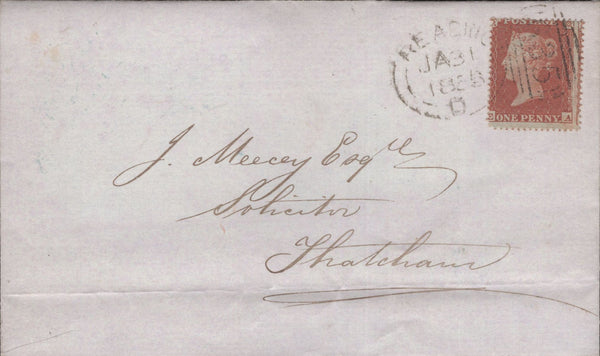 READING
JA 31
185
D
POSTAGE
ONE PENNY
A
J. Meecey Esqre
Solicitor
Thatcham